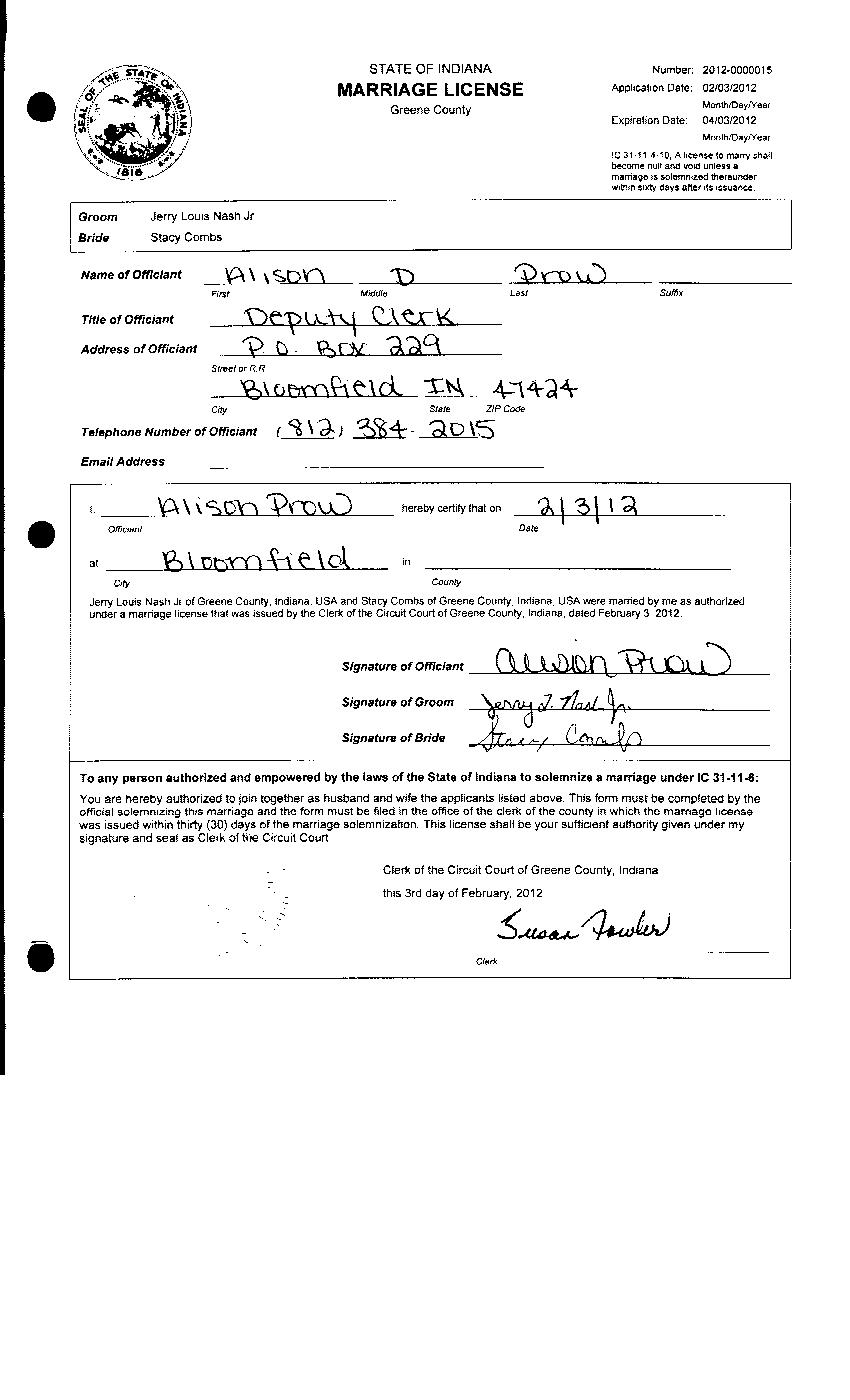 STATE OF INDIANA
MARRIAGE LICENSE
Greene County
SEAL OF THE STATE OF INDIANA
1816
Number: 2012-0000015
Application Date: 02/03/2012
Month/Day/Year
Expiration Date: 04/03/2012
Month/Day/Year
IC 31-11-4-10, A license to marry shall
become null and void unless a
marriage is solemnized thereunder
within sixty days after its issuance.
Groom Jerry Louis Nash Jr
Bride Stacy Combs
Name of Officiant Alison D Prow
First Middle Last Suffix
Title of Officiant Deputy Clerk
Address of Officiant P.O. Box 229
Street or R.R
Bloomfield IN 47424
City State ZIP Code
Telephone Number of Officiant (812) 384-2015
Email Address
I, Alison Prow hereby certify that on 2/3/12
Officiant Date
at Bloomfield in
City County
Jerry Louis Nash Jr of Greene County, Indiana, USA and Stacy Combs of Greene County, Indiana, USA were married by me as authorized
under a marriage license that was issued by the Clerk of the Circuit Court of Greene County, Indiana, dated February 3, 2012.
Signature of Officiant Alison Prow
Signature of Groom Jerry L. Nash Jr.
Signature of Bride Stacy Combs
To any person authorized and empowered by the laws of the State of Indiana to solemnize a marriage under IC 31-11-6:
You are hereby authorized to join together as husband and wife the applicants listed above. This form must be completed by the
official solemnizing this marriage and the form must be filed in the office of the clerk of the county in which the marriage license
was issued within thirty (30) days of the marriage solemnization. This license shall be your sufficient authority given under my
signature and seal as Clerk of the Circuit Court
Clerk of the Circuit Court of Greene County, Indiana
this 3rd day of February, 2012
Susan Fowler
Clerk